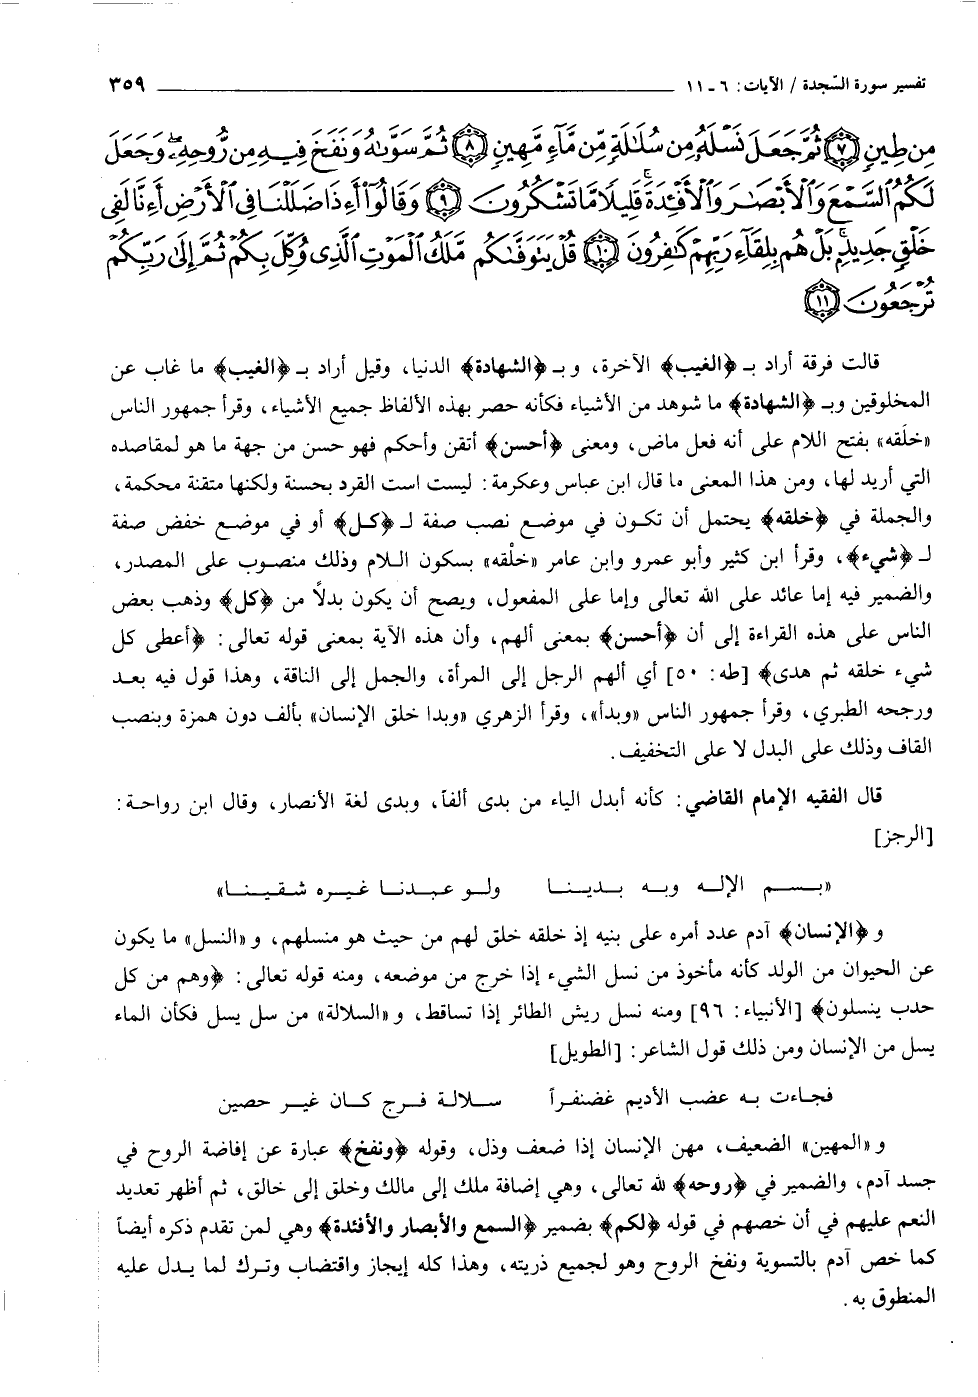 تفسير سورة السّجدة / الآيات: ٦ - ١١ ٣٥٩
مِن طِينٍ ﴿٧﴾ ثُمَّ جَعَلَ نَسْلَهُۥ مِن سُلَٰلَةٍ مِّن مَّآءٍ مَّهِينٍ ﴿٨﴾ ثُمَّ سَوَّىٰهُ وَنَفَخَ فِيهِ مِن رُّوحِهِۦ ۖ وَجَعَلَ
لَكُمُ ٱلسَّمْعَ وَٱلْأَبْصَٰرَ وَٱلْأَفْـِٔدَةَ ۚ قَلِيلًا مَّا تَشْكُرُونَ ﴿٩﴾ وَقَالُوٓا۟ أَءِذَا ضَلَلْنَا فِى ٱلْأَرْضِ أَءِنَّا لَفِى
خَلْقٍ جَدِيدٍۭ ۚ بَلْ هُم بِلِقَآءِ رَبِّهِمْ كَٰفِرُونَ ﴿١٠﴾ قُلْ يَتَوَفَّىٰكُم مَّلَكُ ٱلْمَوْتِ ٱلَّذِى وُكِّلَ بِكُمْ ثُمَّ إِلَىٰ رَبِّكُمْ
تُرْجَعُونَ ﴿١١﴾
قالت فرقة أراد بـ ﴿الغيب﴾ الآخرة، وبـ ﴿الشهادة﴾ الدنيا، وقيل أراد بـ ﴿الغيب﴾ ما غاب عن
المخلوقين وبـ ﴿الشهادة﴾ ما شوهد من الأشياء فكأنه حصر بهذه الألفاظ جميع الأشياء، وقرأ جمهور الناس
«خلَقه» بفتح اللام على أنه فعل ماض، ومعنى ﴿أحسن﴾ أتقن وأحكم فهو حسن من جهة ما هو لمقاصده
التي أريد لها، ومن هذا المعنى ما قال ابن عباس وعكرمة: ليست است القرد بحسنة ولكنها متقنة محكمة،
والجملة في ﴿خلقه﴾ يحتمل أن تكون في موضع نصب صفة لـ ﴿كل﴾ أو في موضع خفض صفة
لـ ﴿شيء﴾، وقرأ ابن كثير وأبو عمرو وابن عامر «خلْقه» بسكون اللام وذلك منصوب على المصدر،
والضمير فيه إما عائد على الله تعالى وإما على المفعول، ويصح أن يكون بدلاً من ﴿كل﴾ وذهب بعض
الناس على هذه القراءة إلى أن ﴿أحسن﴾ بمعنى ألهم، وأن هذه الآية بمعنى قوله تعالى: ﴿أعطى كل
شيء خلقه ثم هدى﴾ [طه: ٥٠] أي ألهم الرجل إلى المرأة، والجمل إلى الناقة، وهذا قول فيه بعد
ورجحه الطبري، وقرأ جمهور الناس «وبدأ»، وقرأ الزهري «وبدا خلق الإنسان» بألف دون همزة وبنصب
القاف وذلك على البدل لا على التخفيف.
قال الفقيه الإمام القاضي: كأنه أبدل الياء من بدى ألفاً، وبدى لغة الأنصار، وقال ابن رواحة:
[الرجز]
«بسم الإله وبه بدينا ولو عبدنا غيره شقينا»
و﴿الإنسان﴾ آدم عدد أمره على بنيه إذ خلقه خلق لهم من حيث هو منسلهم، و«النسل» ما يكون
عن الحيوان من الولد كأنه مأخوذ من نسل الشيء إذا خرج من موضعه، ومنه قوله تعالى: ﴿وهم من كل
حدب ينسلون﴾ [الأنبياء: ٩٦] ومنه نسل ريش الطائر إذا تساقط، و«السلالة» من سل يسل فكأن الماء
يسل من الإنسان ومن ذلك قول الشاعر: [الطويل]
فجاءت به عضب الأديم غضنفراً سلالة فرج كان غير حصين
و«المهين» الضعيف، مهن الإنسان إذا ضعف وذل، وقوله ﴿ونفخ﴾ عبارة عن إفاضة الروح في
جسد آدم، والضمير في ﴿روحه﴾ لله تعالى، وهي إضافة ملك إلى مالك وخلق إلى خالق، ثم أظهر تعديد
النعم عليهم في أن خصهم في قوله ﴿لكم﴾ بضمير ﴿السمع والأبصار والأفئدة﴾ وهي لمن تقدم ذكره أيضاً
كما خص آدم بالتسوية ونفخ الروح وهو لجميع ذريته، وهذا كله إيجاز واقتضاب وترك لما يدل عليه
المنطوق به.